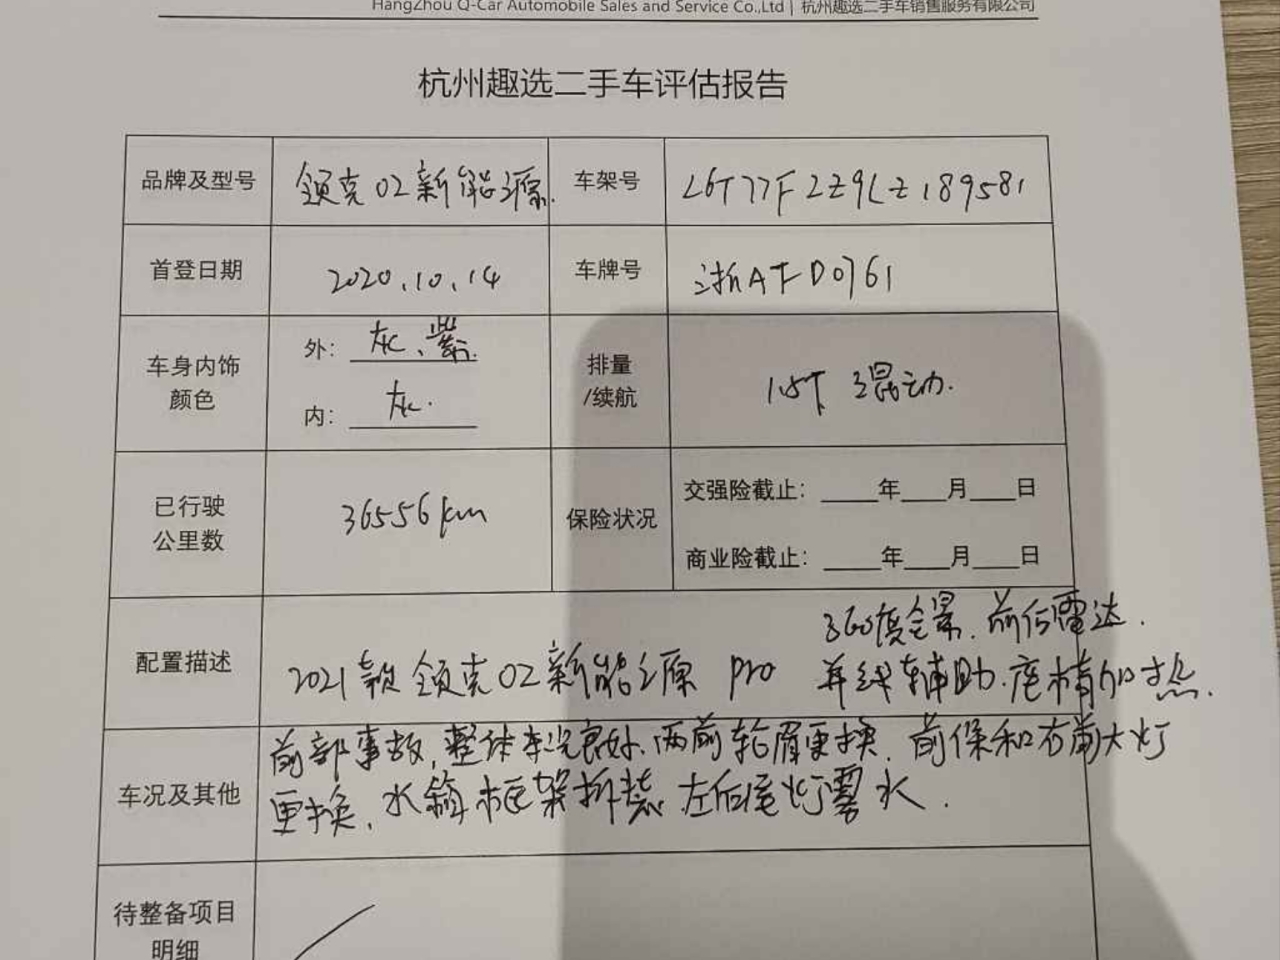 HangZhou Q-Car Automobile Sales and Service Co.,Ltd | 杭州趣选二手车销售服务有限公司
杭州趣选二手车评估报告
品牌及型号 领克02新能源. 车架号 L6T77F2Z9LZ189581
首登日期 2020.10.14 车牌号 浙AFD0761
车身内饰
颜色
外: 灰、紫.
内: 灰.
排量
/续航
1.5T 混动.
已行驶
公里数
36556km
保险状况
交强险截止: 年 月 日
商业险截止: 年 月 日
配置描述
360度全景. 前后雷达.
2021款领克02新能源 Pro 并线辅助.座椅加热.
车况及其他
前部事故,整体车况良好.两前轮眉更换.前保和右前大灯
更换.水箱框架拆装 左后尾灯雾水.
待整备项目
明细